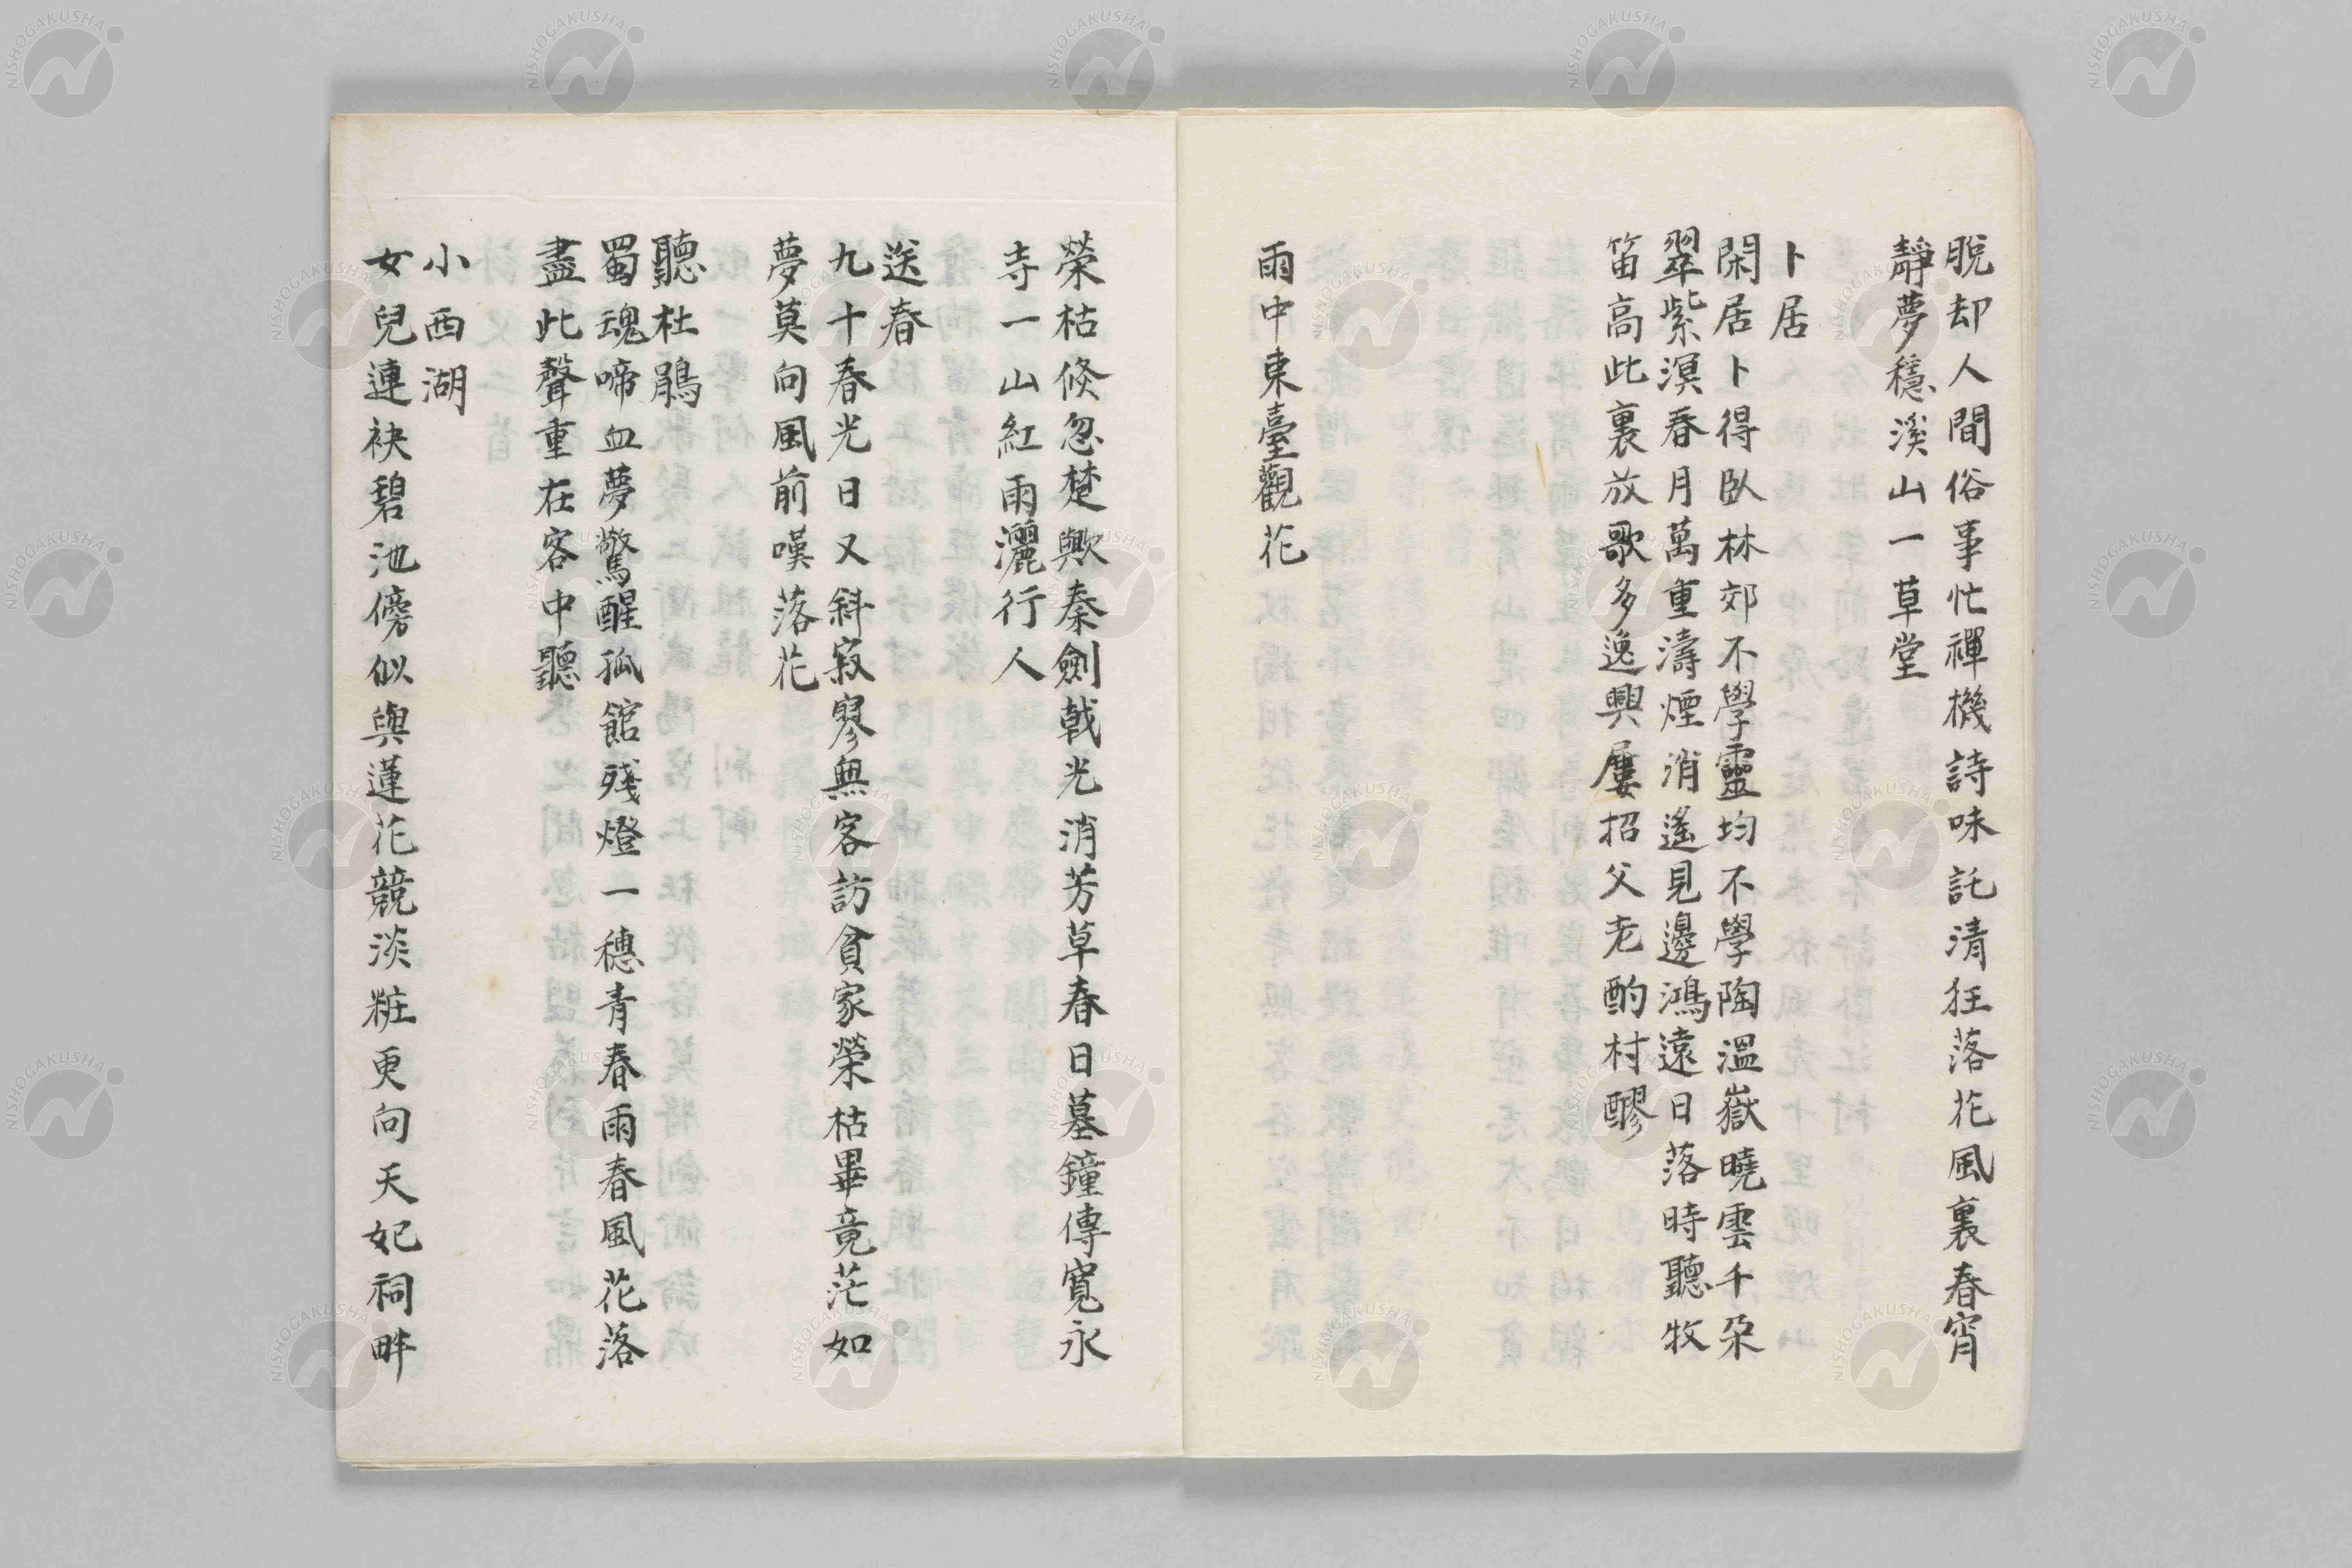 脫却人間俗事忙禪機詩味託清狂落花風裏春宵
靜夢穩溪山一草堂
卜居
閑居卜得臥林郊不學靈均不學陶溫嶽曉雲千朶
翠紫溟春月萬重濤煙消遙見邊鴻遠日落時聽牧
笛高此裏放歌多逸興屢招父老酌村醪
雨中東臺觀花
榮枯倐忽楚歟秦劍戟光消芳草春日墓鐘傳寬永
寺一山紅雨灑行人
送春
九十春光日又斜寂寥無客訪貧家榮枯畢竟茫如
夢莫向風前嘆落花
聽杜鵑
蜀魂啼血夢驚醒孤館殘燈一穗青春雨春風花落
盡此聲重在客中聽
小西湖
女兒連袂碧池傍似與蓮花競淡粧更向天妃祠畔
NISHOGAKUSHA